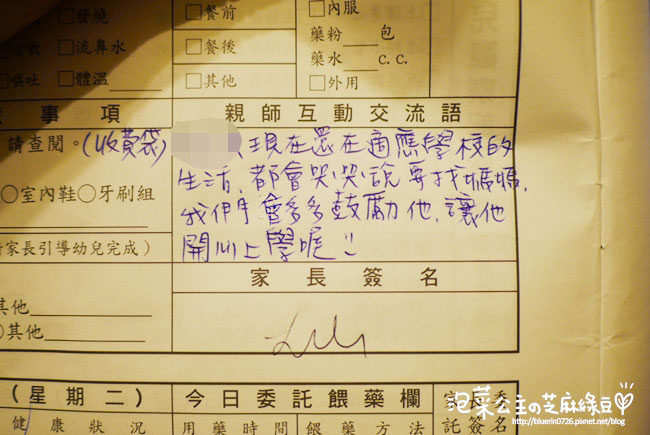 □發燒
□餐前
□內服
□流鼻水
□餐後
藥粉____包
藥水____c.c.
嘔吐 □體溫
□其他
□外用
事項
親師互動交流語
請查閱。(收費袋)
現在還在適應學校的
生活,都會哭哭說要找媽媽,
我們會多多鼓勵他,讓他
開心上學呢!!
○室內鞋○牙刷組
家長引導幼兒完成)
家長簽名
其他
○其他
(星期二)
今日委託餵藥欄
家長委
託簽名
健康狀況
用藥時間
餵藥方法
泡菜公主の芝麻綠豆
http://bluerin0726.pixnet.net/blog